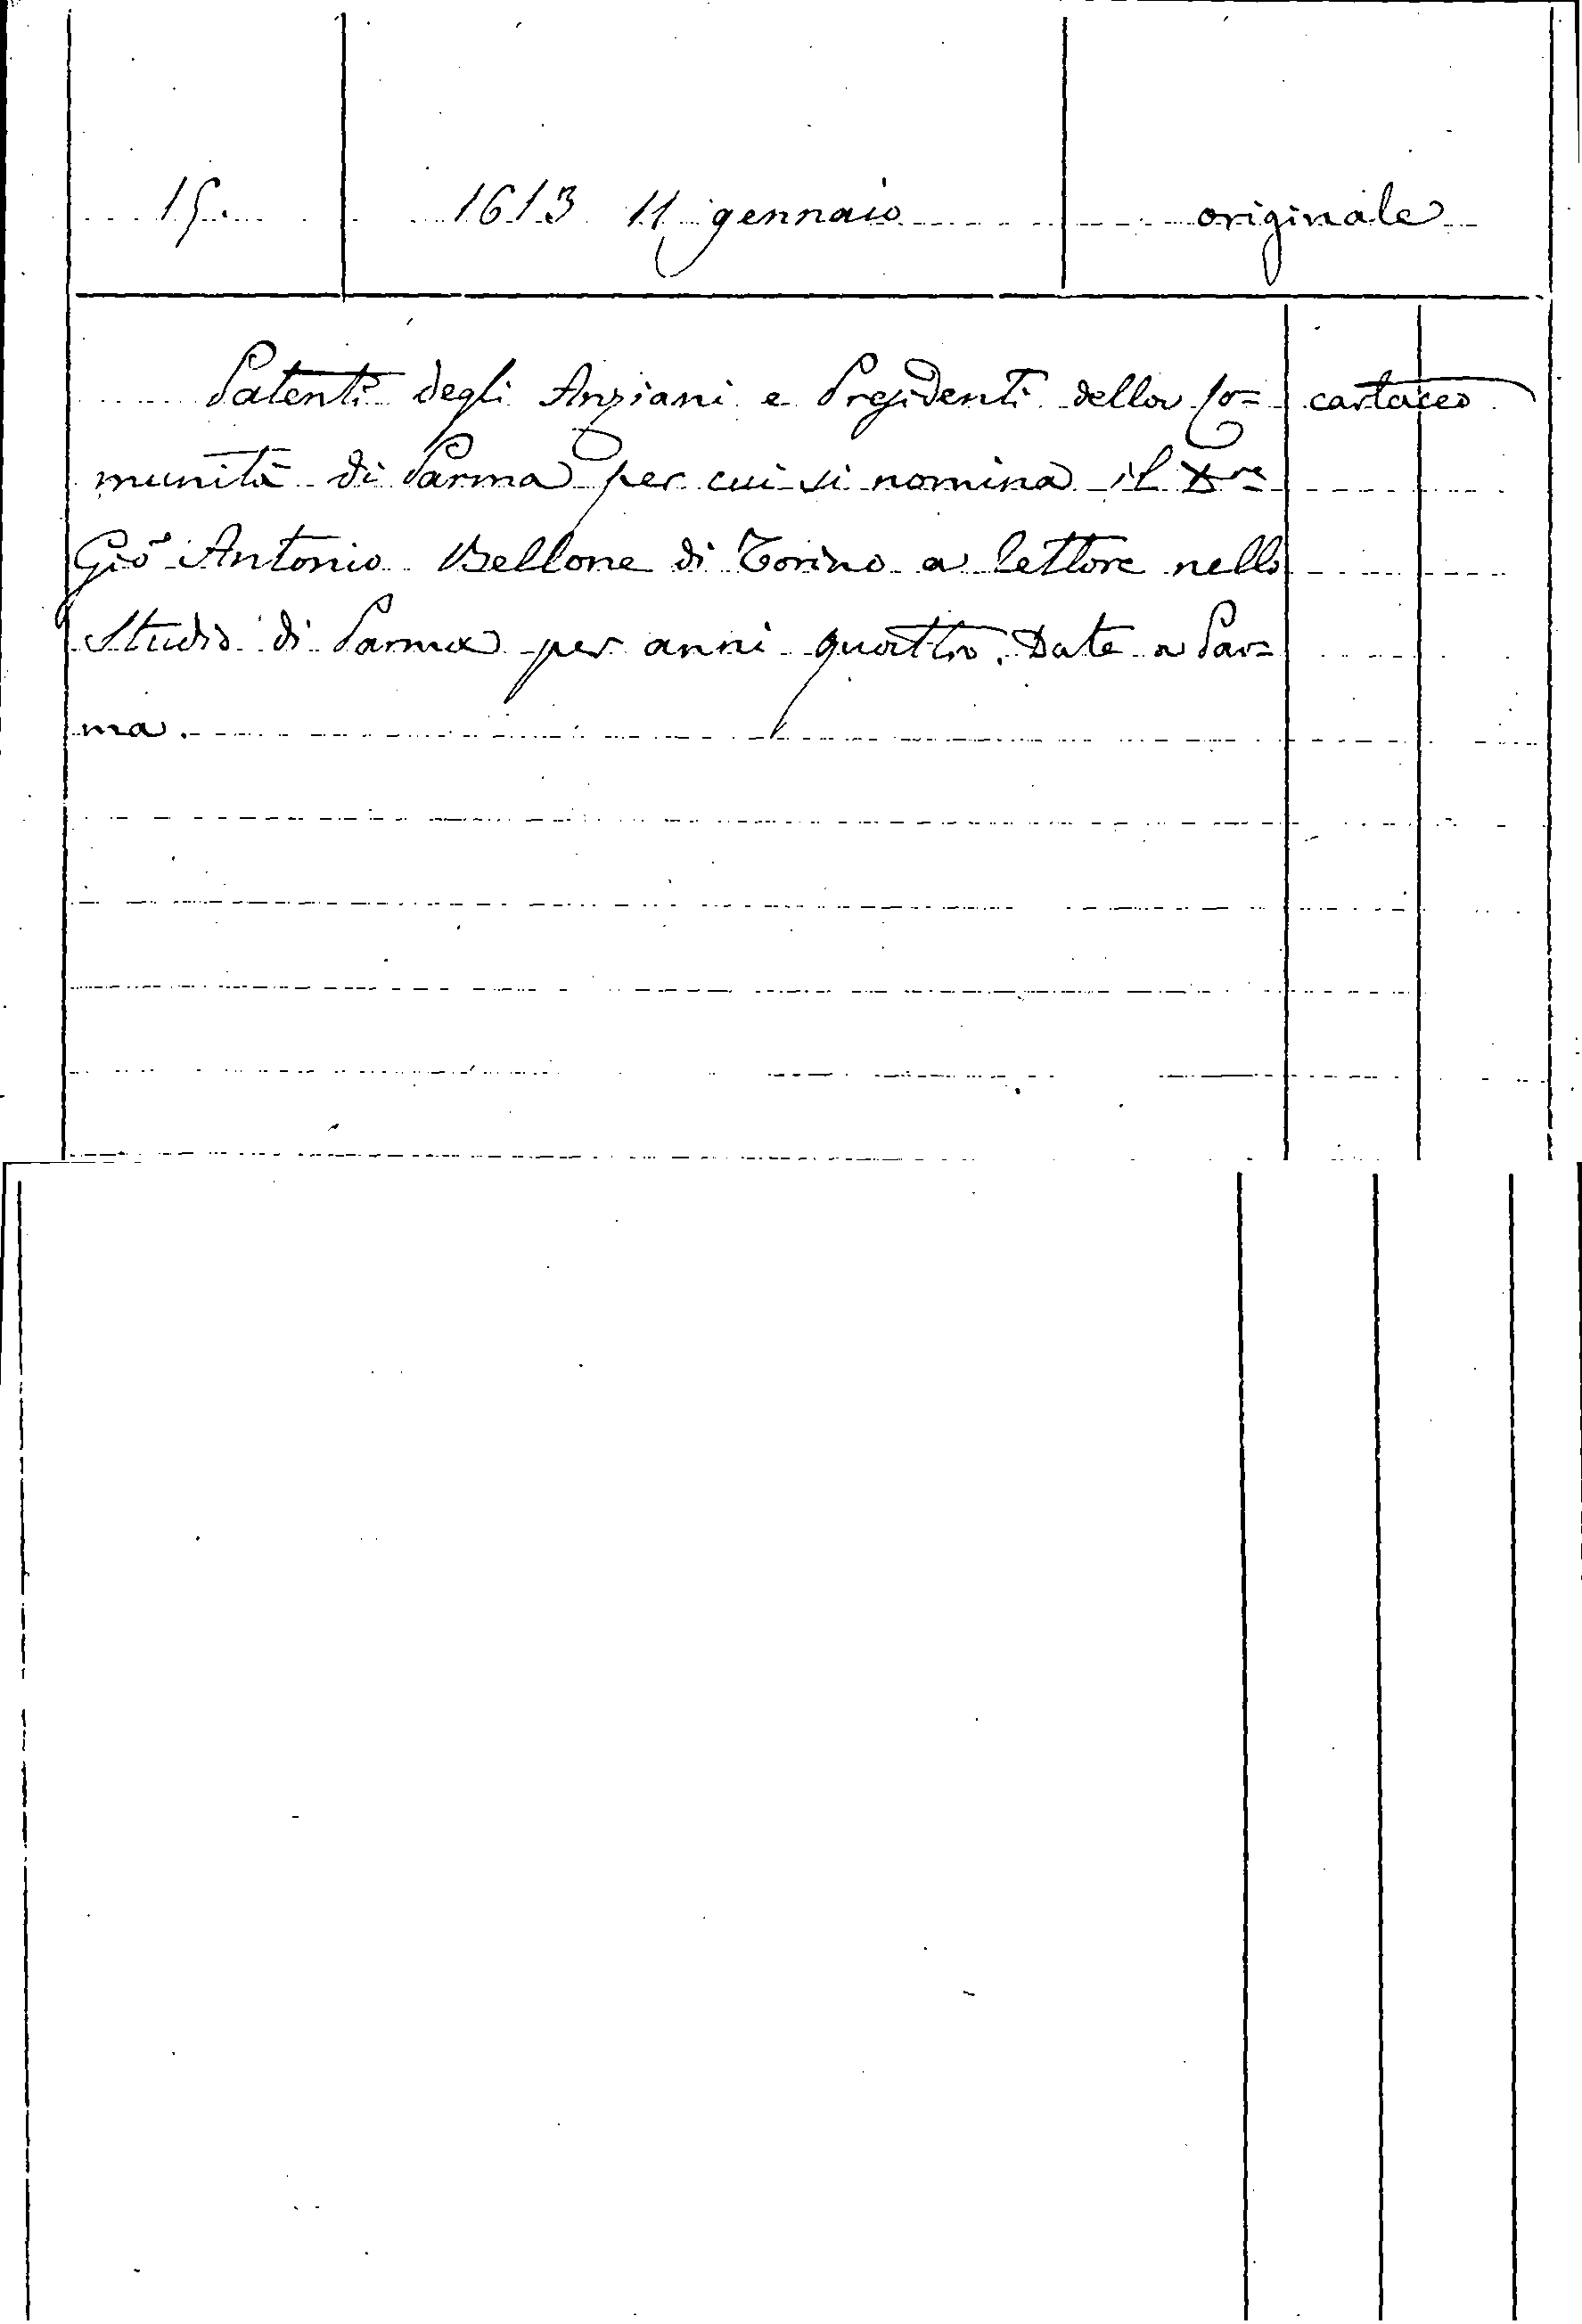 15. 1613 11 gennaio originale
Patenti degli Anziani e Presidenti della Co= cartaceo
munità di Parma per cui si nomina il Dre
Gio Antonio Bellone di Torino a lettore nello
Studio di Parma per anni quattro. Date a Par=
ma.